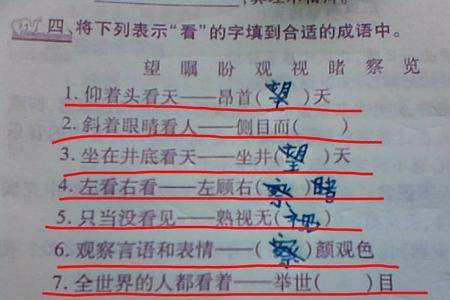 四、将下列表示“看”的字填到合适的成语中。
望 嘱 盼 观 视 睹 察 览
1. 仰着头看天——昂首(望)天
2. 斜着眼睛看人——侧目而( )
3. 坐在井底看天——坐井(望)天
4. 左看右看——左顾右(察)睹
5. 只当没看见——熟视无( )
6. 观察言语和表情——(察)颜观色
7. 全世界的人都看着——举世( )目